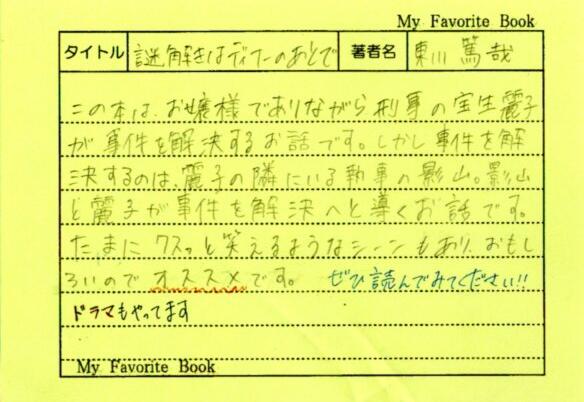 My Favorite Book
タイトル 謎解きはディナーのあとで 著者名 東川 篤哉
この本は、お嬢様でありながら刑事の宝生麗子
が事件を解決するお話です。しかし事件を解
決するのは、麗子の隣にいる執事の影山。影山
と麗子が事件を解決へと導くお話です。
たまにクスっと笑えるようなシーンもあり、おもし
ろいのでオススメです。 ぜひ読んでみてください!!
ドラマもやってます
My Favorite Book